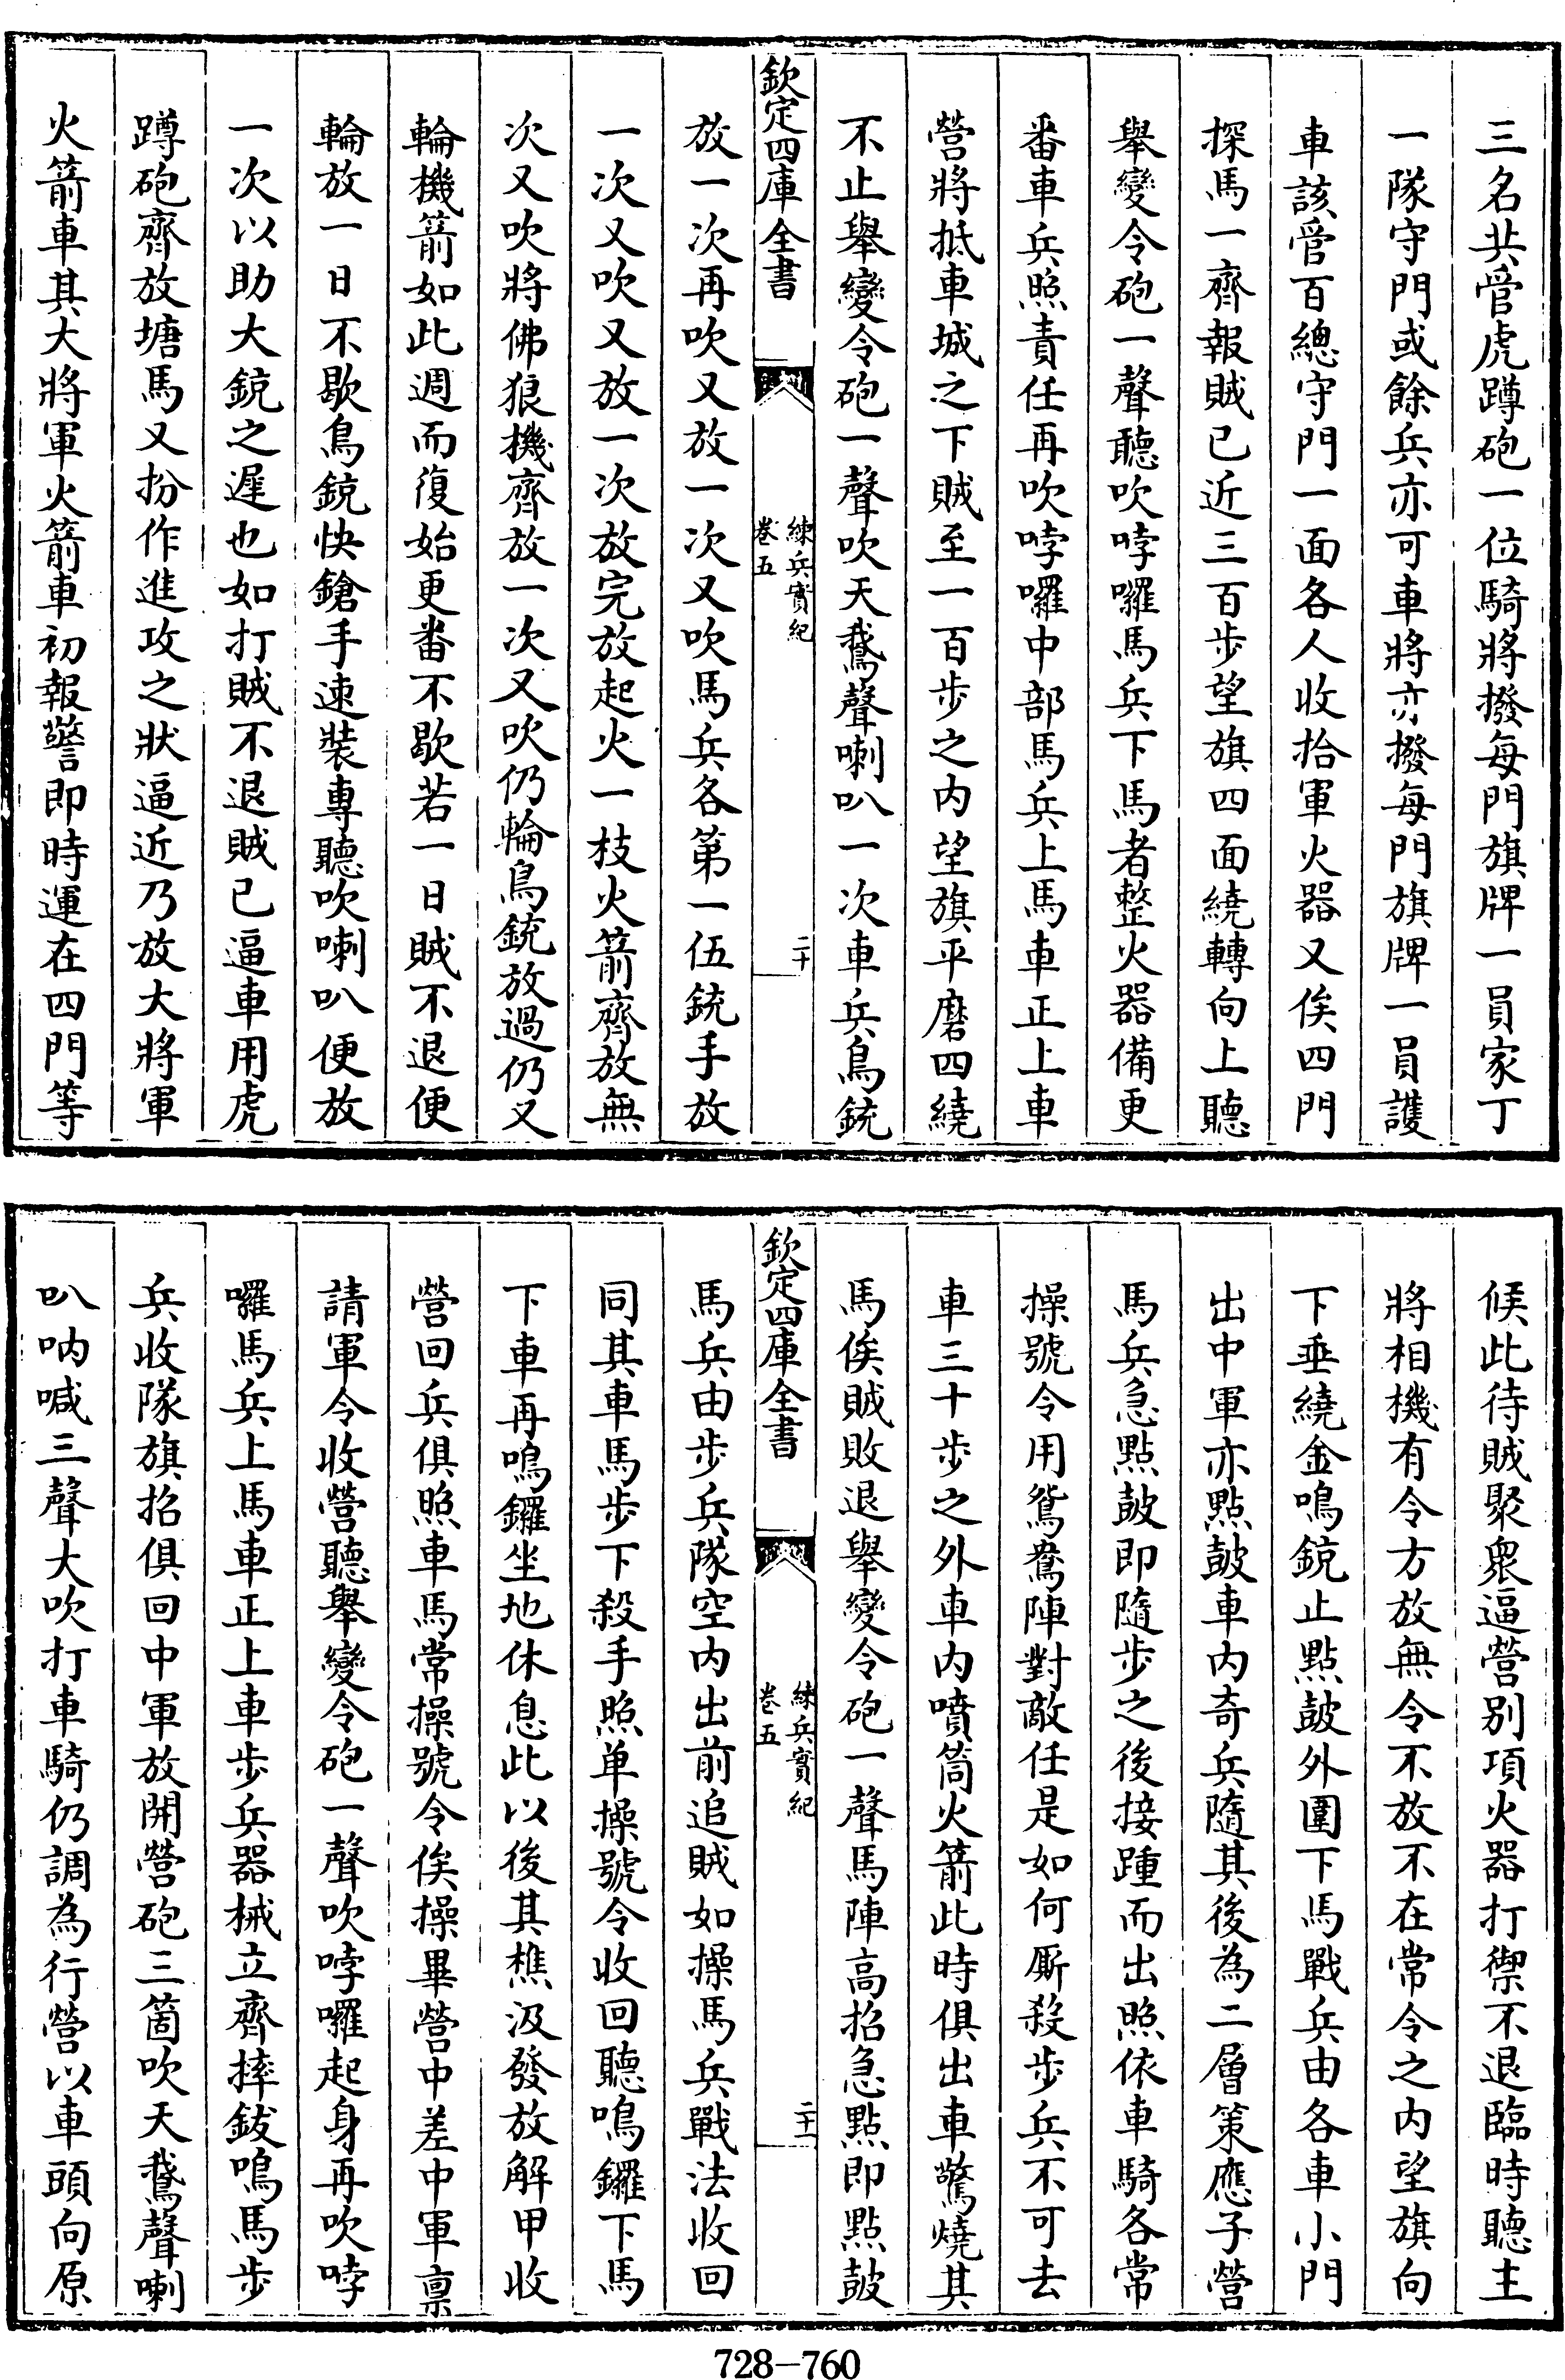 三名共管虎蹲砲一位騎將撥每門旗牌一員家丁
一隊守門或餘兵亦可車將亦撥每門旗牌一員護
車該管百總守門一面各人收拾軍火器又俟四門
探馬一齊報賊已近三百步望旗四面繞轉向上聽
舉變令砲一聲聽吹哱囉馬兵下馬者整火器備更
番車兵照責任再吹哱囉中部馬兵上馬車正上車
營將抵車城之下賊至一百步之內望旗平磨四繞
不止舉變令砲一聲吹天鵝聲喇叭一次車兵鳥銃
欽定四庫全書
練兵實紀
卷五
二十
放一次再吹又放一次又吹馬兵各第一伍銃手放
一次又吹又放一次放完放起火一枝火箭齊放無
次又吹將佛狼機齊放一次又吹仍輪鳥銃放過仍又
輪機箭如此週而復始更番不歇若一日賊不退便
輪放一日不歇鳥銃快鎗手速裝專聽吹喇叭便放
一次以助大銃之遲也如打賊不退賊已逼車用虎
蹲砲齊放塘馬又扮作進攻之狀逼近乃放大將軍
火箭車其大將軍火箭車初報警即時運在四門等
候此待賊聚衆逼營别項火器打禦不退臨時聽主
將相機有令方放無令不放不在常令之內望旗向
下垂繞金鳴銃止點鼓外圍下馬戰兵由各車小門
出中軍亦點鼓車內奇兵隨其後為二層策應子營
馬兵急點鼓即隨步之後接踵而出照依車騎各常
操號令用鴛鴦陣對敵任是如何厮殺步兵不可去
車三十步之外車內噴筒火箭此時俱出車驚燒其
馬俟賊敗退舉變令砲一聲馬陣高招急點即點鼓
欽定四庫全書
練兵實紀
卷五
二十一
馬兵由步兵隊空內出前追賊如操馬兵戰法收回
同其車馬步下殺手照单操號令收回聽鳴鑼下馬
下車再鳴鑼坐地休息此以後其樵汲發放解甲收
營回兵俱照車馬常操號令俟操畢營中差中軍禀
請軍令收營聽舉變令砲一聲吹哱囉起身再吹哱
囉馬兵上馬車正上車步兵器械立齊摔鈸鳴馬步
兵收隊旗招俱回中軍放開營砲三箇吹天鵝聲喇
叭吶喊三聲大吹打車騎仍調為行營以車頭向原
728-760